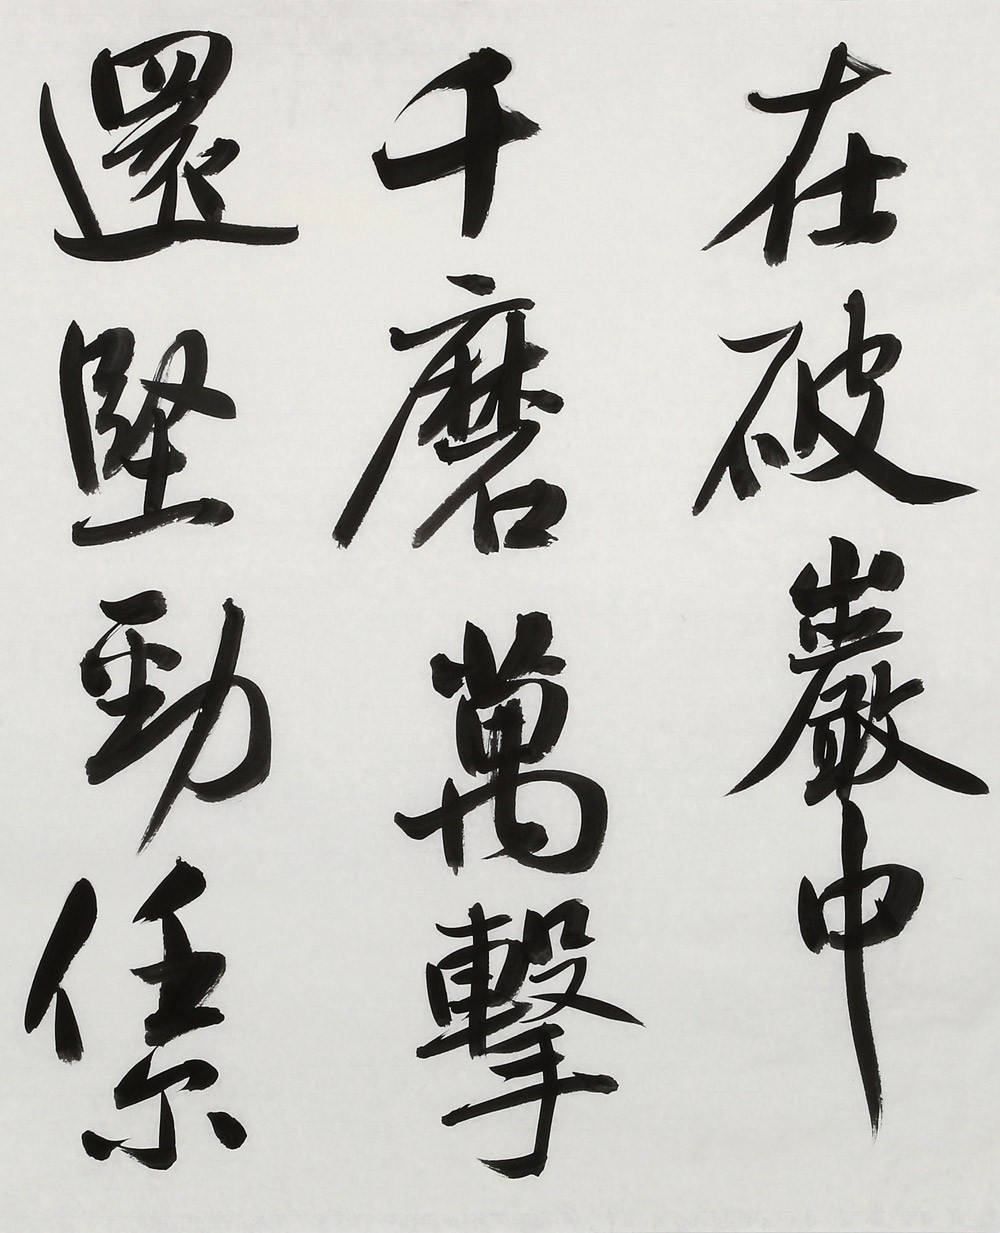 在破巖中
千磨萬擊
還堅勁任尔